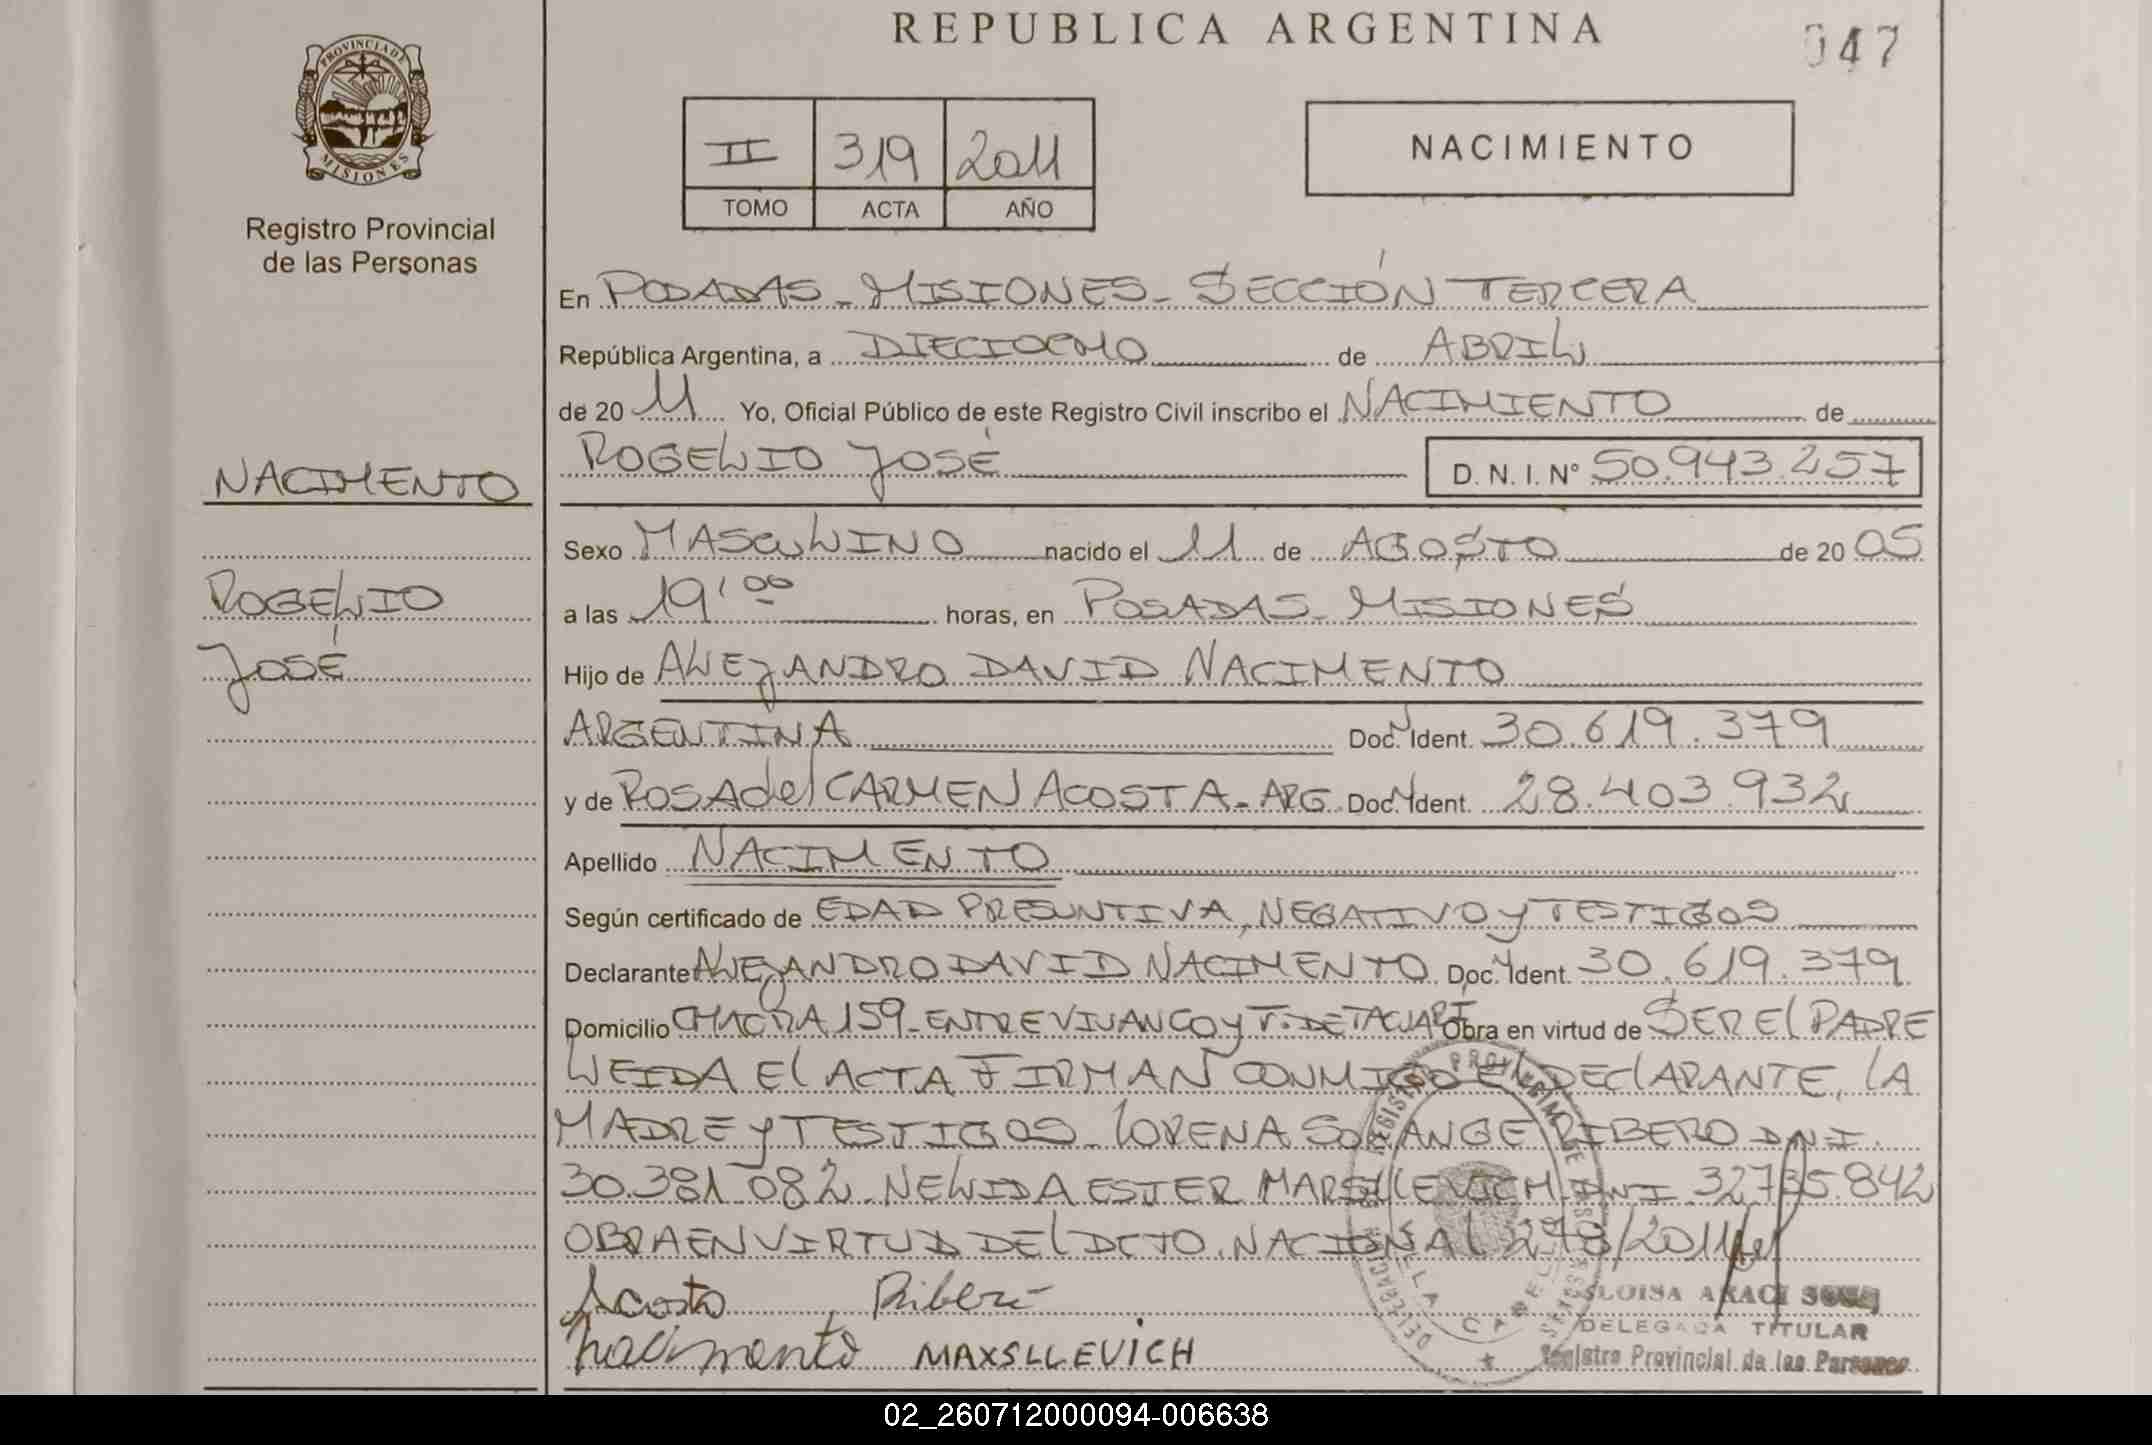 REPUBLICA ARGENTINA
047
PROVINCIA DE MISIONES
Registro Provincial
de las Personas
II 319 2011
TOMO ACTA AÑO
NACIMIENTO
En POSADAS - MISIONES - SECCIÓN TERCERA
República Argentina, a DIECIOCHO de ABRIL
de 20 11 Yo, Oficial Público de este Registro Civil inscribo el NACIMIENTO de
ROGELIO JOSÉ D. N. I. N° 50.943.257
NACIMENTO
ROGELIO
JOSÉ
Sexo MASCULINO nacido el 11 de AGOSTO de 20 05
a las 19'00 horas, en POSADAS - MISIONES
Hijo de ALEJANDRO DAVID NACIMENTO
ARGENTINA Doc. Ident. 30.619.379
y de ROSA del CARMEN ACOSTA - ARG. Doc. Ident. 28.403.932
Apellido NACIMENTO
Según certificado de EDAD PRESUNTIVA, NEGATIVO y TESTIGOS
Declarante ALEJANDRO DAVID NACIMENTO Doc. Ident. 30.619.379
Domicilio CHACRA 159 - ENTRE VIVANCO y T. DE Obra en virtud de SER El PADRE
LEIDA El ACTA FIRMAN CONMIGO El DEClARANTE, lA
MADRE y TESTIGOS lORENA SOLANGE RIBERO DNI
30.381.082 NELIDA ESTER DNI 32735.842
OBRA EN VIRTUD DEl DCTO. NACIONAl 278/2011
Acosta Ribero
Nacimento MAXSLLEVICH
ELOISA ARACI
DELEGADA TITULAR
Registro Provincial de las Personas
02_260712000094-006638